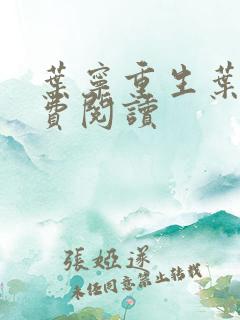 葉寧重生葉
費閱讀
張婭遂
未任同意禁止转载